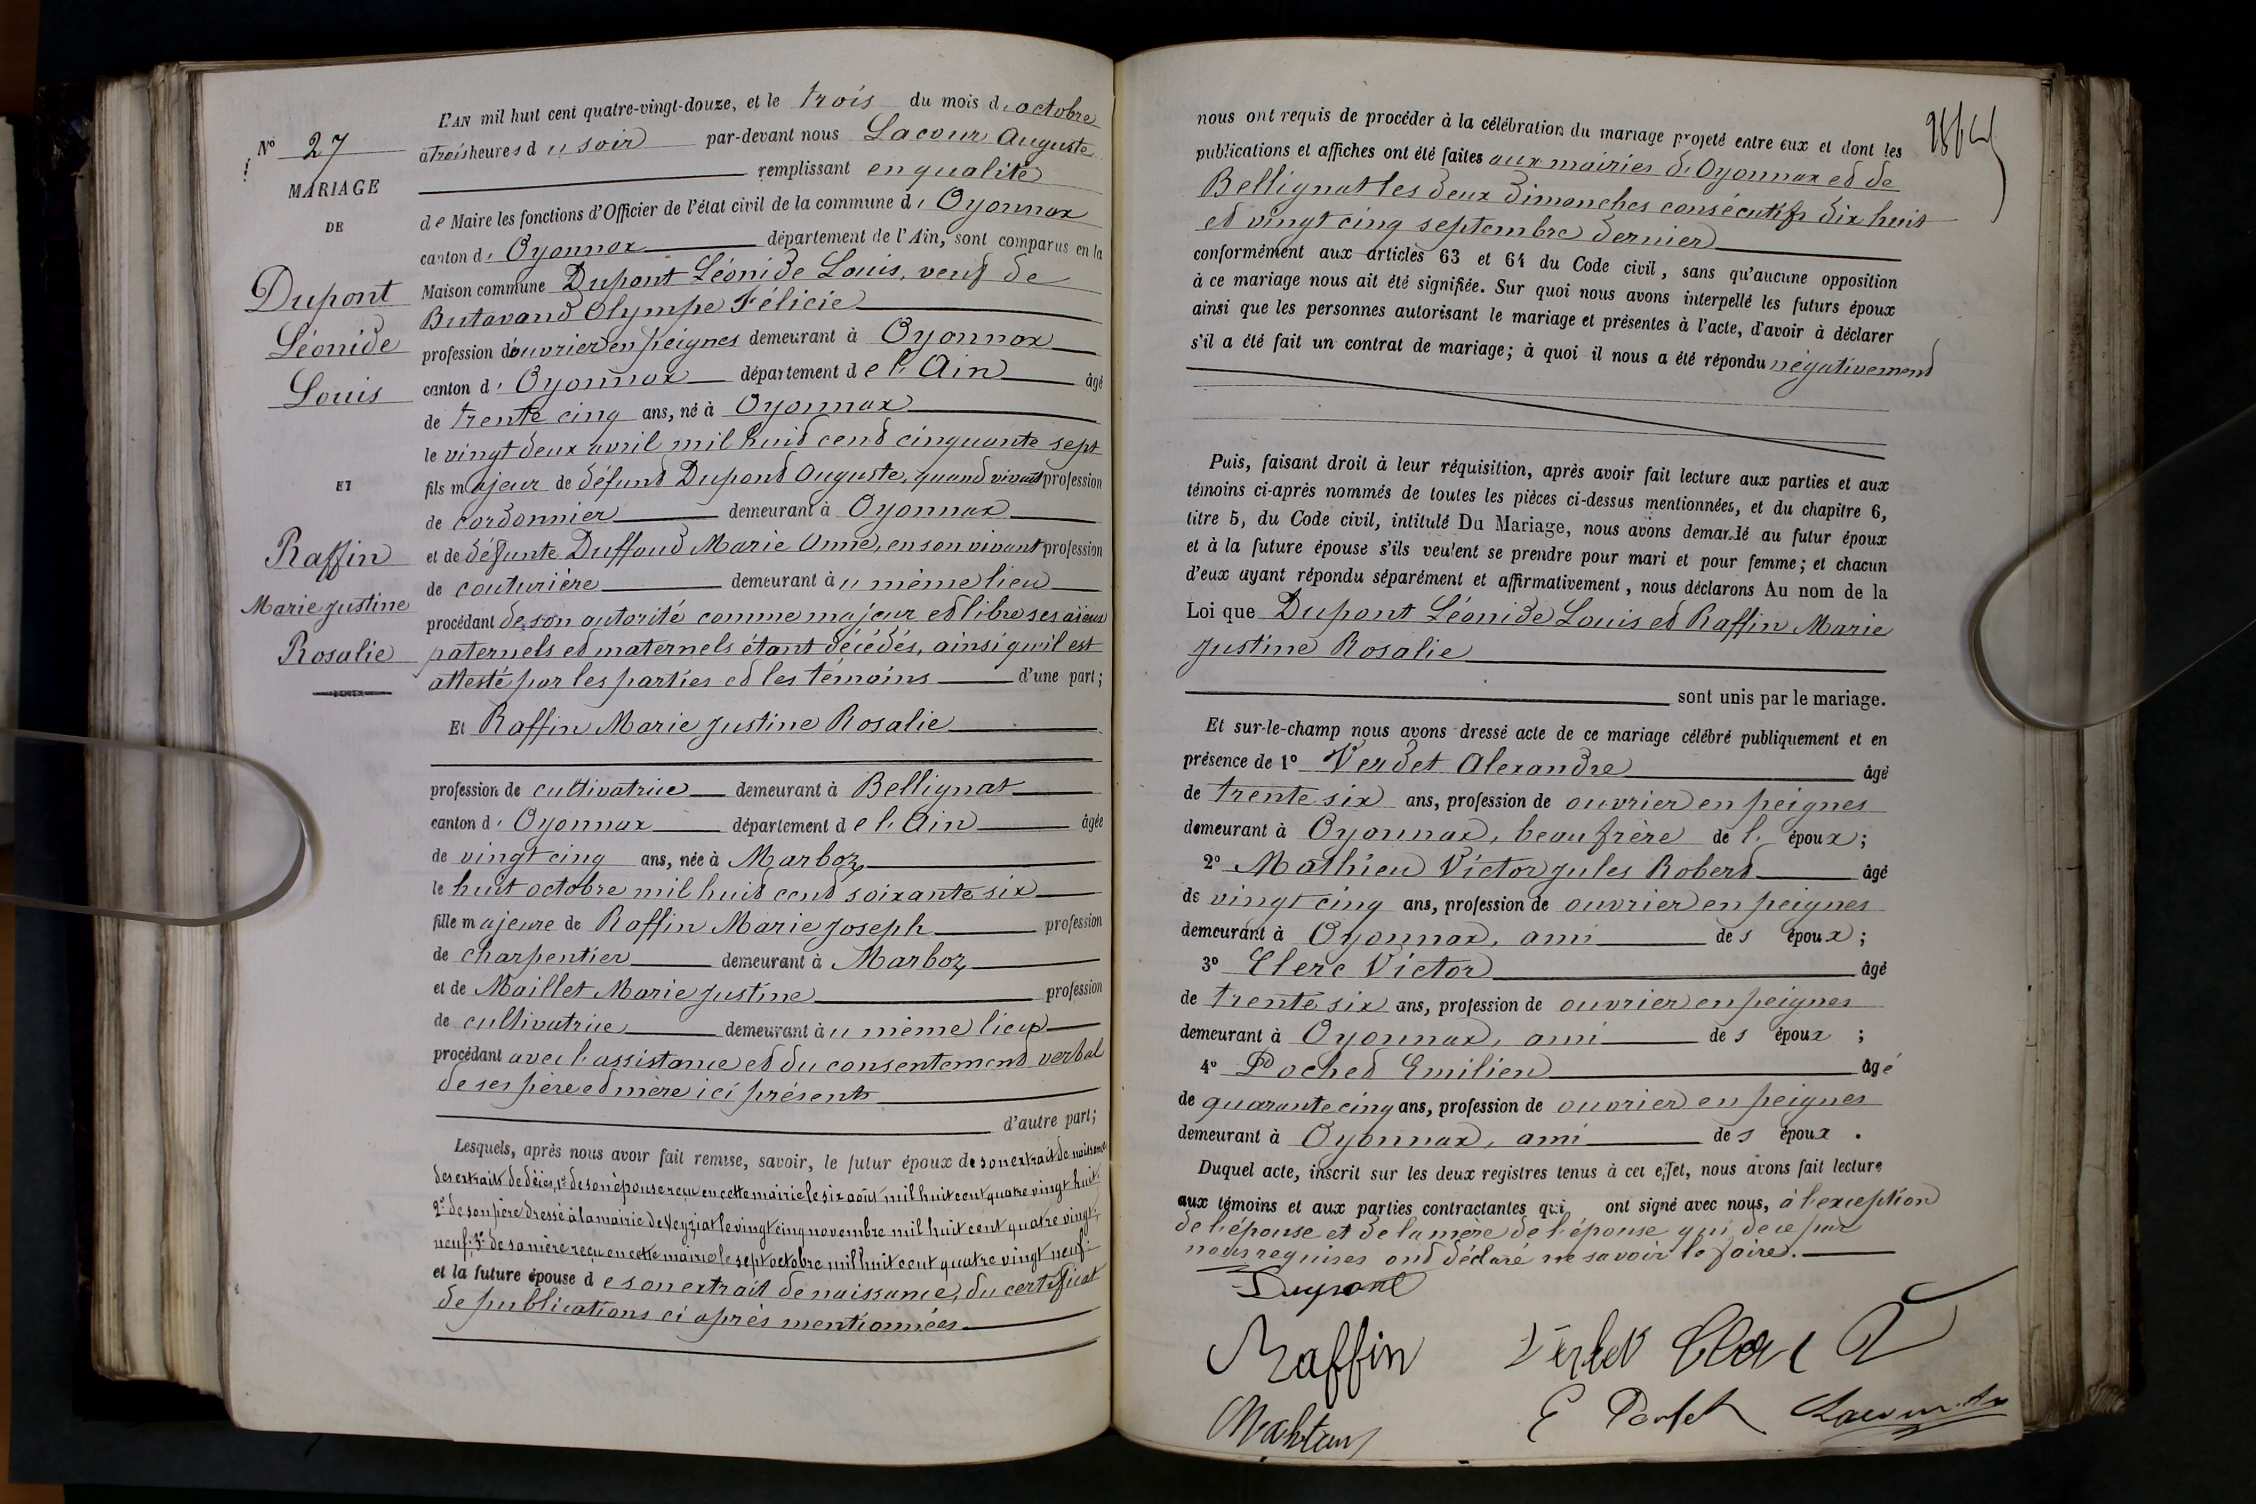 N° 27
MARIAGE
DE
Dupont
Léonide
Louis
ET
Raffin
Marie Justine
Rosalie
L'AN mil huit cent quatre-vingt-douze, et le trois du mois d'octobre
à trois heures du soir par-devant nous Lacour Auguste
remplissant en qualité
de Maire les fonctions d'Officier de l'état civil de la commune d'Oyonnax
canton d'Oyonnax département de l'Ain, sont comparus en la
Maison commune Dupont Léonide Louis, veuf de
Butavand Olympe Félicie
profession d'ouvrier en peignes demeurant à Oyonnax
canton d'Oyonnax département de l'Ain âgé
de trente cinq ans, né à Oyonnax
le vingt deux avril mil huit cent cinquante sept
fils majeur de défunt Dupont Auguste, quand vivant profession
de cordonnier demeurant à Oyonnax
et de défunte Duffoud Marie Anne, en son vivant profession
de couturière demeurant au même lieu
procédant de son autorité comme majeur et libre ses aïeux
paternels et maternels étant décédés, ainsi qu'il est
attesté par les parties et les témoins d'une part;
Et Raffin Marie Justine Rosalie
profession de cultivatrice demeurant à Bellignat
canton d'Oyonnax département de l'Ain âgée
de vingt cinq ans, née à Marboz
le huit octobre mil huit cent soixante six
fille majeure de Raffin Marie Joseph profession
de charpentier demeurant à Marboz
et de Maillet Marie Justine profession
de cultivatrice demeurant au même lieu
procédant avec l'assistance et du consentement verbal
de ses père et mère ici présents
d'autre part;
Lesquels, après nous avoir fait remise, savoir, le futur époux de son extrait de naissance
des extraits de décès, 1° de son épouse reçu en cette mairie le six août mil huit cent quatre vingt huit
2° de son père dressé à la mairie de Veyziat le vingt cinq novembre mil huit cent quatre vingt
neuf; 3° de sa mère reçu en cette mairie le sept octobre mil huit cent quatre vingt neuf
et la future épouse de son extrait de naissance, du certificat
de publications ci après mentionnées
nous ont requis de procéder à la célébration du mariage projeté entre eux et dont les
publications et affiches ont été faites aux mairies d'Oyonnax et de
Bellignat les deux dimanches consécutifs dix huit
et vingt cinq septembre dernier
conformément aux articles 63 et 64 du Code civil, sans qu'aucune opposition
à ce mariage nous ait été signifiée. Sur quoi nous avons interpellé les futurs époux
ainsi que les personnes autorisant le mariage et présentes à l'acte, d'avoir à déclarer
s'il a été fait un contrat de mariage; à quoi il nous a été répondu négativement
Puis, faisant droit à leur réquisition, après avoir fait lecture aux parties et aux
témoins ci-après nommés de toutes les pièces ci-dessus mentionnées, et du chapitre 6,
titre 5, du Code civil, intitulé Du Mariage, nous avons demandé au futur époux
et à la future épouse s'ils veulent se prendre pour mari et pour femme; et chacun
d'eux ayant répondu séparément et affirmativement, nous déclarons Au nom de la
Loi que Dupont Léonide Louis et Raffin Marie
Justine Rosalie
sont unis par le mariage.
Et sur-le-champ nous avons dressé acte de ce mariage célébré publiquement et en
présence de 1° Verdet Alexandre âgé
de trente six ans, profession de ouvrier en peignes
demeurant à Oyonnax, beau frère de l'époux;
2° Mathieu Victor Jules Robert âgé
de vingt cinq ans, profession de ouvrier en peignes
demeurant à Oyonnax, ami des époux;
3° Clerc Victor âgé
de trente six ans, profession de ouvrier en peignes
demeurant à Oyonnax, ami des époux;
4° Pochet Emilien âgé
de quarante cinq ans, profession de ouvrier en peignes
demeurant à Oyonnax, ami des époux.
Duquel acte, inscrit sur les deux registres tenus à cet effet, nous avons fait lecture
aux témoins et aux parties contractantes qui ont signé avec nous, à l'exception
de l'épouse et de la mère de l'épouse qui de ce par
nous requises ont déclaré ne savoir le faire.
Dupont
Raffin Clerc V